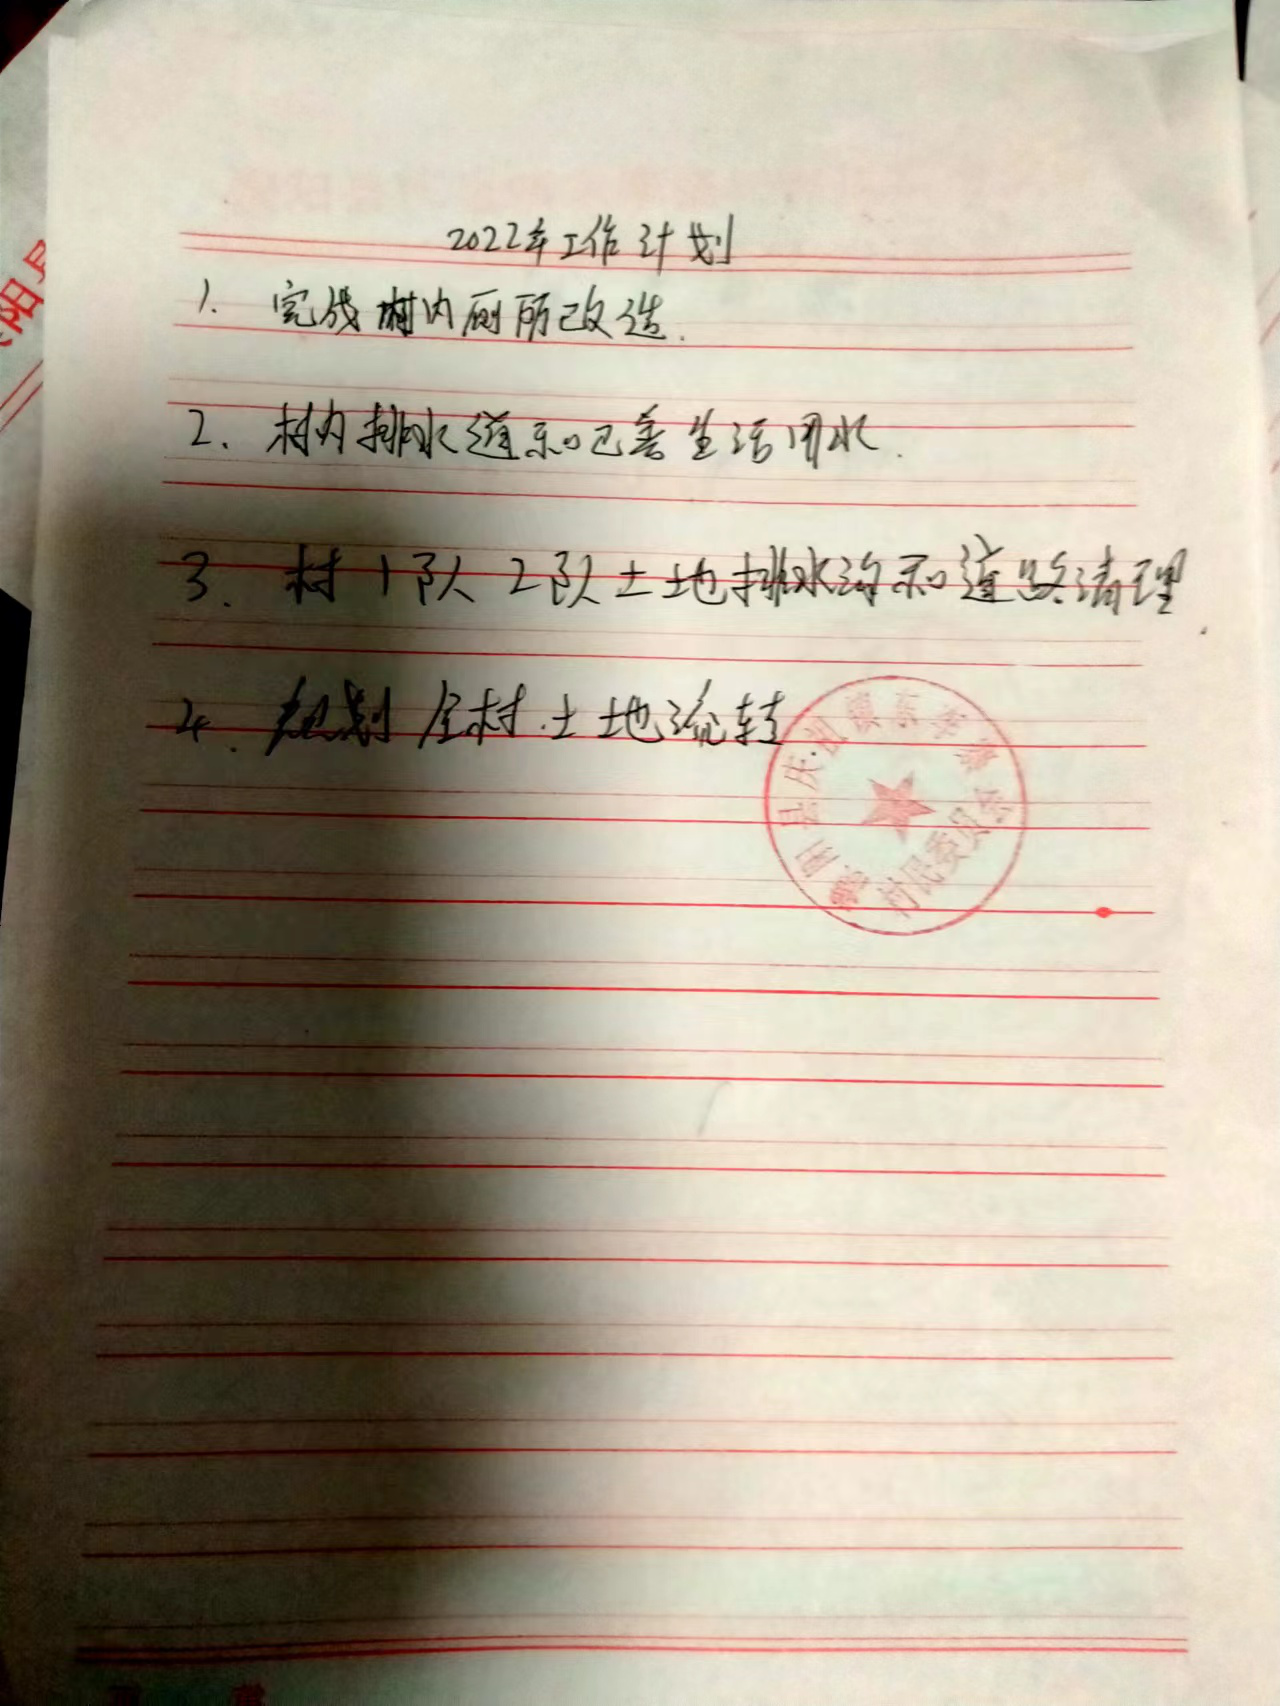 2022年工作计划
1. 完成村内厕所改造.
2. 村内排水道和已善生活用水.
3. 村1队2队土地排水沟和道路清理.
4. 规划全村土地流转
濮阳县庆祖镇东
村民委员会
阳县